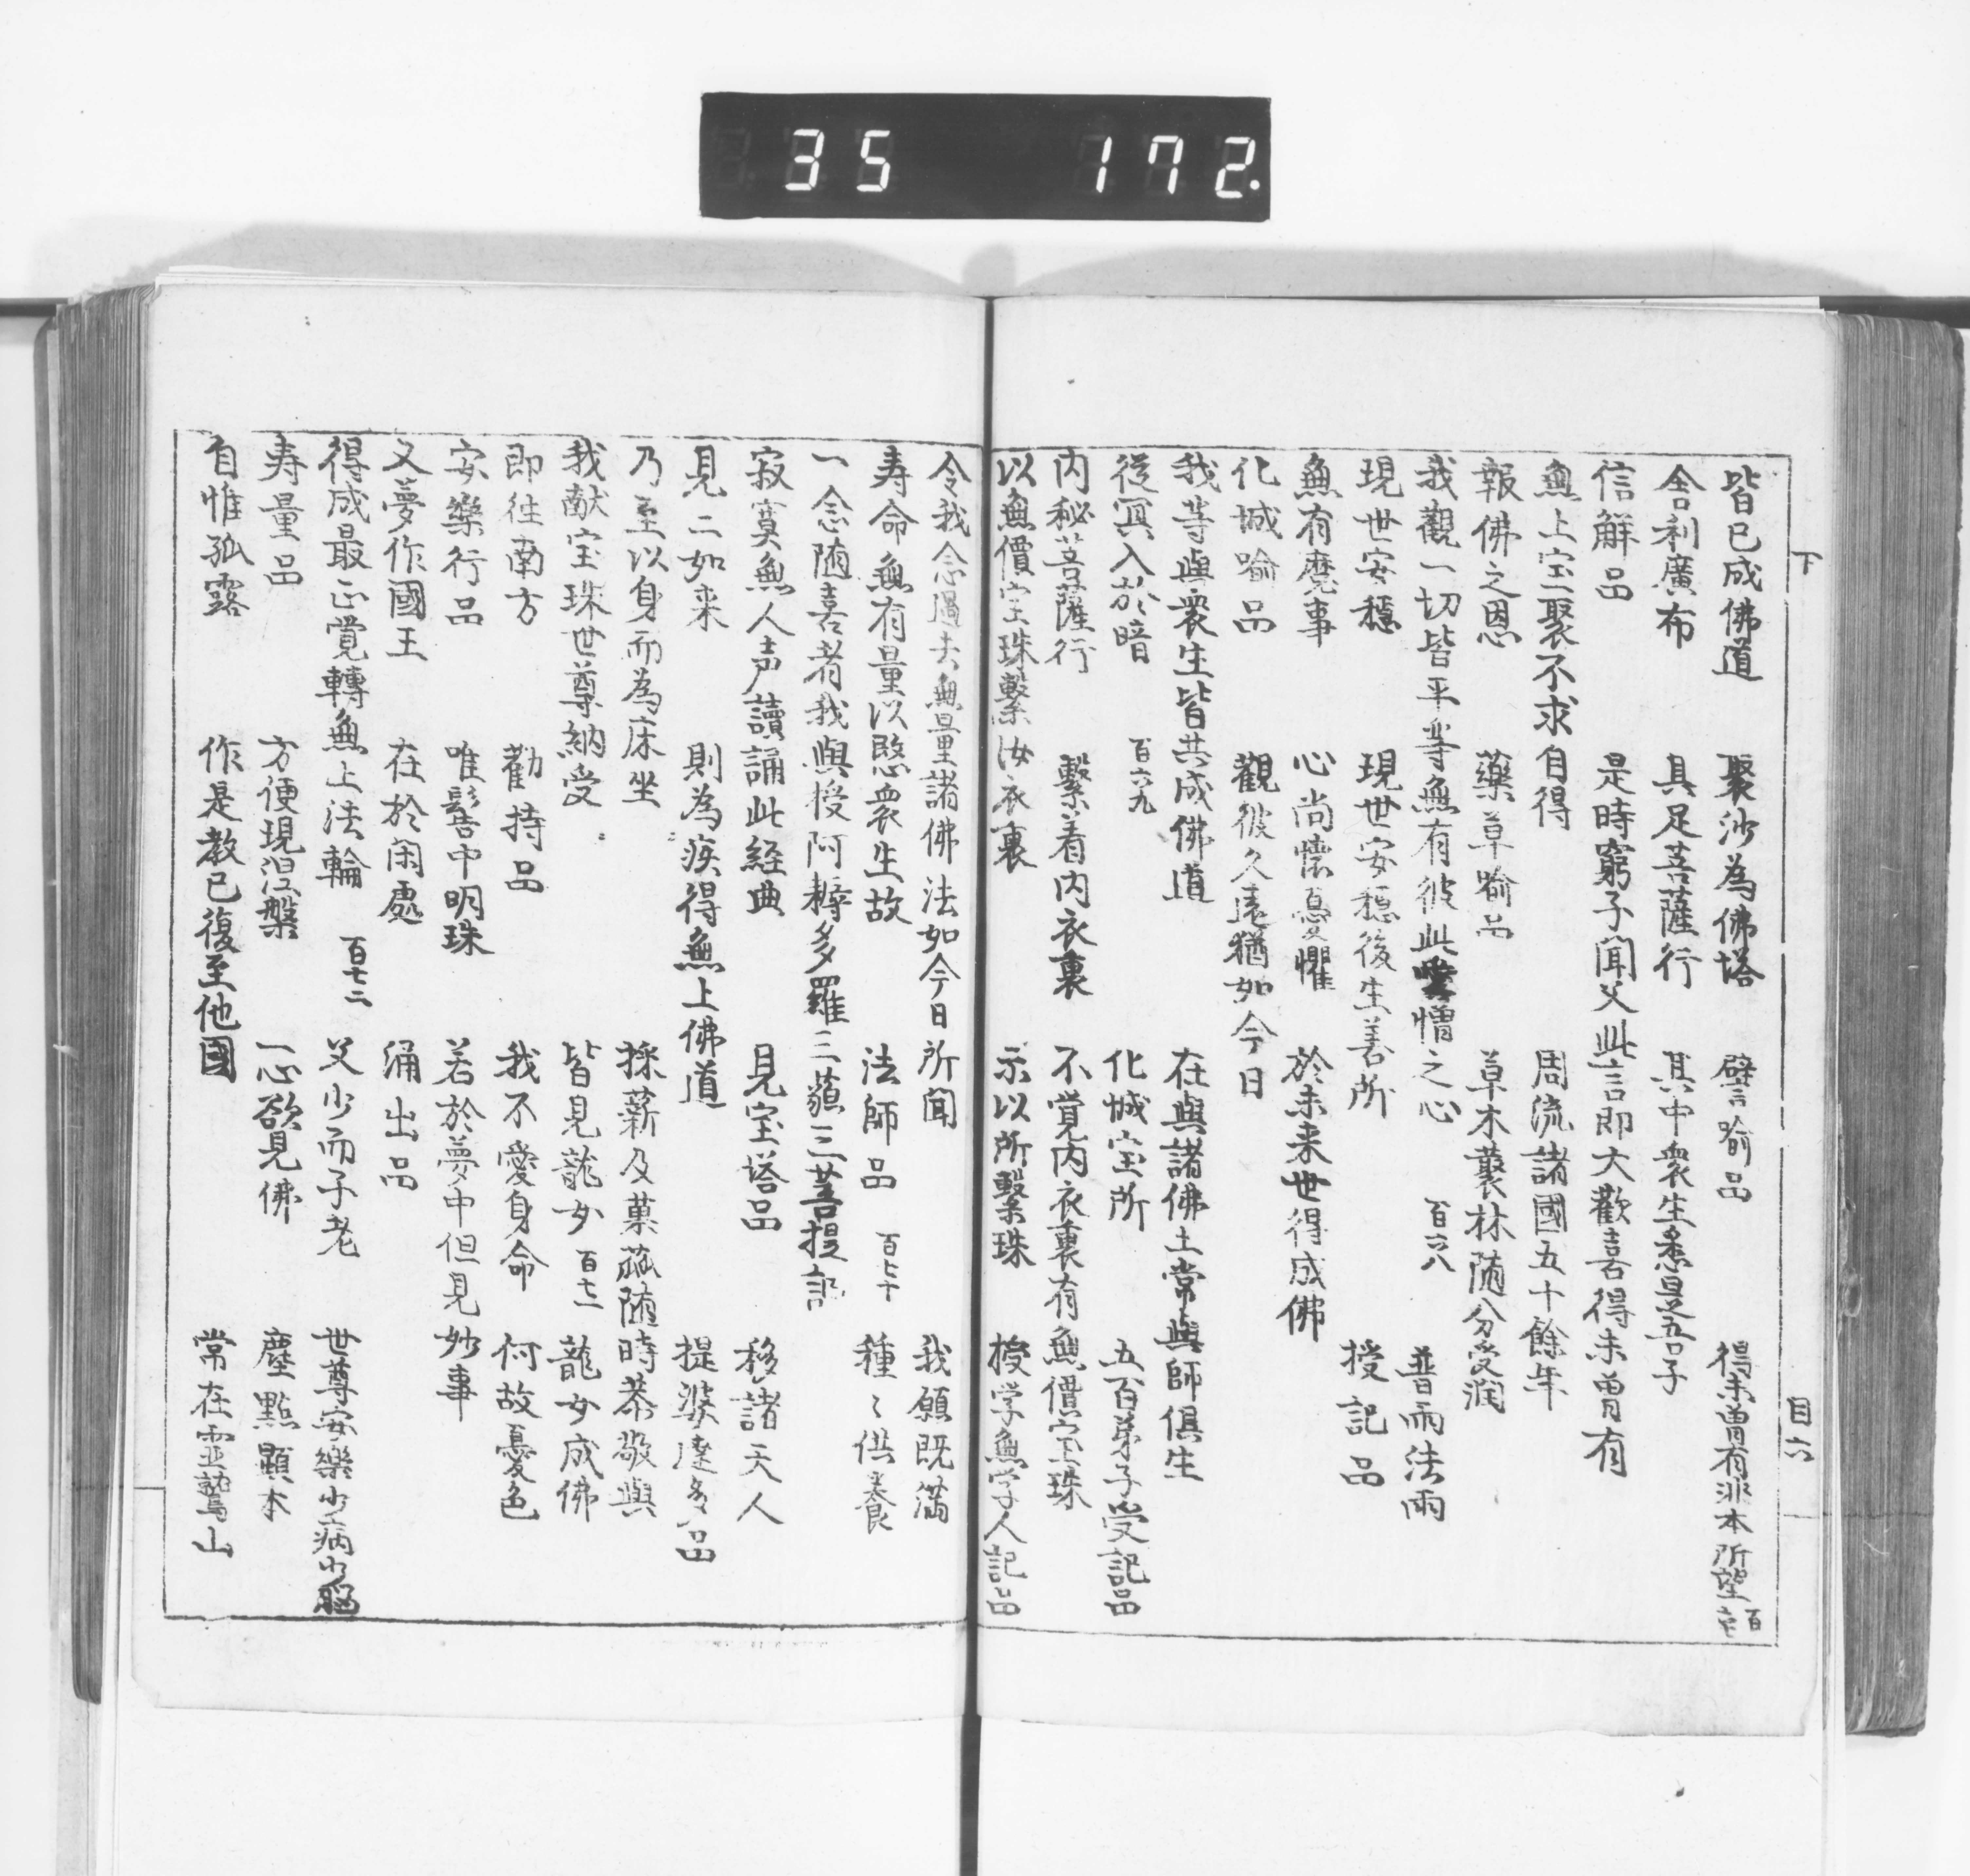 35 172.
下
目六
皆已成佛道 聚沙為佛塔 譬喻品 得未曽有非本所望 百
舎利廣布 具足菩薩行 其中衆生悉是吾子
信解品 是時窮子聞父此言即大歡喜得未曽有
無上宝聚不求自得 周流諸國五十餘年
報佛之恩 藥草喻品 草木叢林随分受潤
我觀一切皆平等無有彼此愛憎之心 百六八 普雨法雨
現世安穏 現世安穏後生善所 授記品
無有魔事 心尚懐憂懼 於未来世得成佛
化城喻品 觀彼久遠猶如今日
我等與衆生皆共成佛道 在與諸佛土常與師俱生
従冥入於暗 百六九 化城宝所 五百弟子受記品
内秘菩薩行 繫着内衣裏 不覚内衣裏有無價宝珠
以無價宝珠繫汝衣裏 示以所繫珠 授学無学人記品
令我念過去無量諸佛法如今日所聞 我願既満
寿命無有量以愍衆生故 法師品 百七十 種々供養
一念随喜者我與授阿耨多羅三藐三菩提記
寂寞無人声讀誦此経典 見宝塔品 移諸天人
見二如来 則為疾得無上佛道 提婆達多品
乃至以身而為床坐 採薪及菓蓏随時恭敬與
我献宝珠世尊納受 皆見龍女 百七一 龍女成佛
即往南方 勧持品 我不愛身命 何故憂色
安樂行品 唯髻中明珠 若於夢中但見妙事
又夢作國王 在於閑處 涌出品
得成最正覚轉無上法輪 百七二 父少而子老 世尊安樂少病少悩
寿量品 方便現涅槃 一心欲見佛 塵點顕本
自惟孤露 作是教已復至他國 常在霊鷲山